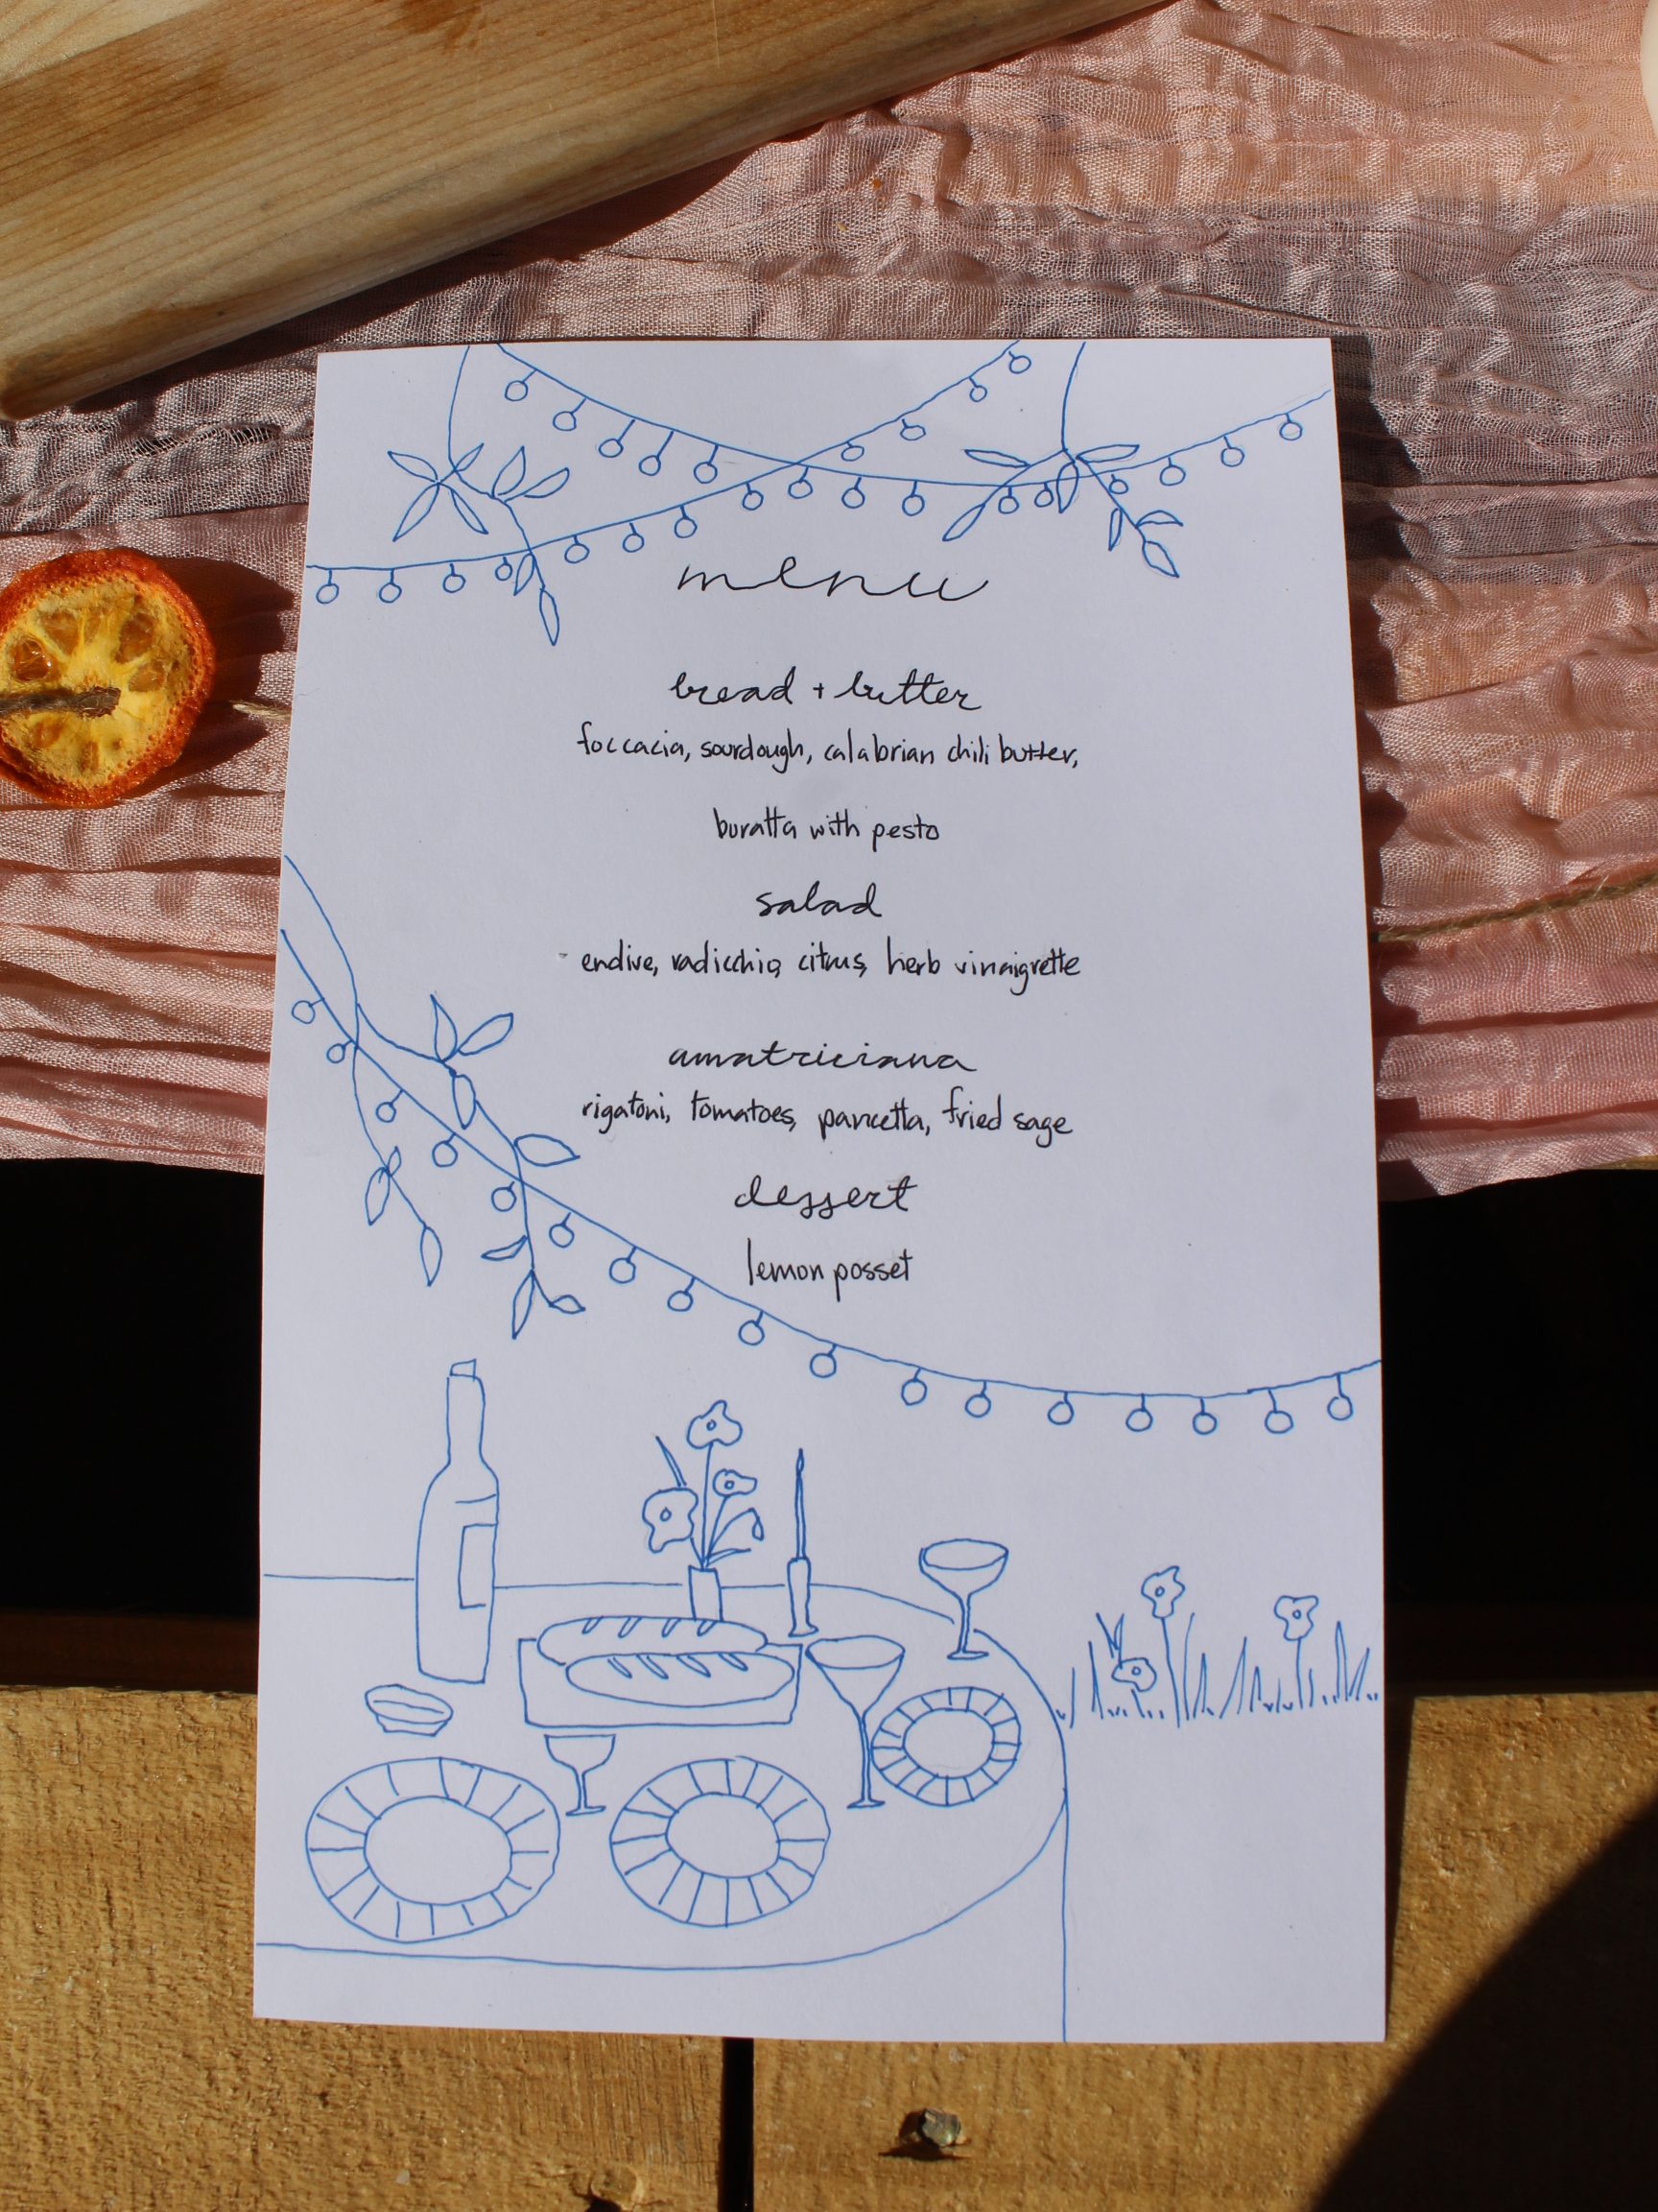 menu
bread + butter
foccacia, sourdough, calabrian chili butter,
buratta with pesto
salad
endive, radicchio, citrus, herb vinaigrette
amatriciana
rigatoni, tomatoes, pancetta, fried sage
dessert
lemon posset